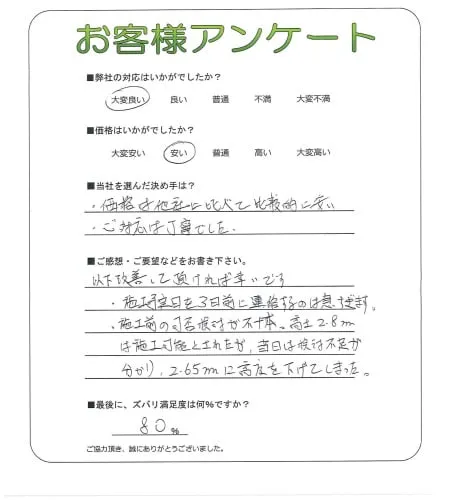 お客様アンケート
■弊社の対応はいかがでしたか？
大変良い 良い 普通 不満 大変不満
■価格はいかがでしたか？
大変安い 安い 普通 高い 大変高い
■当社を選んだ決め手は？
・価格は他社に比べて比較的に安い
・ご対応は丁寧でした。
■ご感想・ご要望などをお書き下さい。
以下改善して頂ければ幸いです
・施工予定日を3日前に連絡するのは急すぎます。
・施工前の可否検討が不十分。高土2.8m
は施工可能とされたが、当日は検討不足が
分かり、2.65mに高度を下げてしまった。
■最後に、ズバリ満足度は何%ですか？
80%
ご協力頂き、誠にありがとうございました。